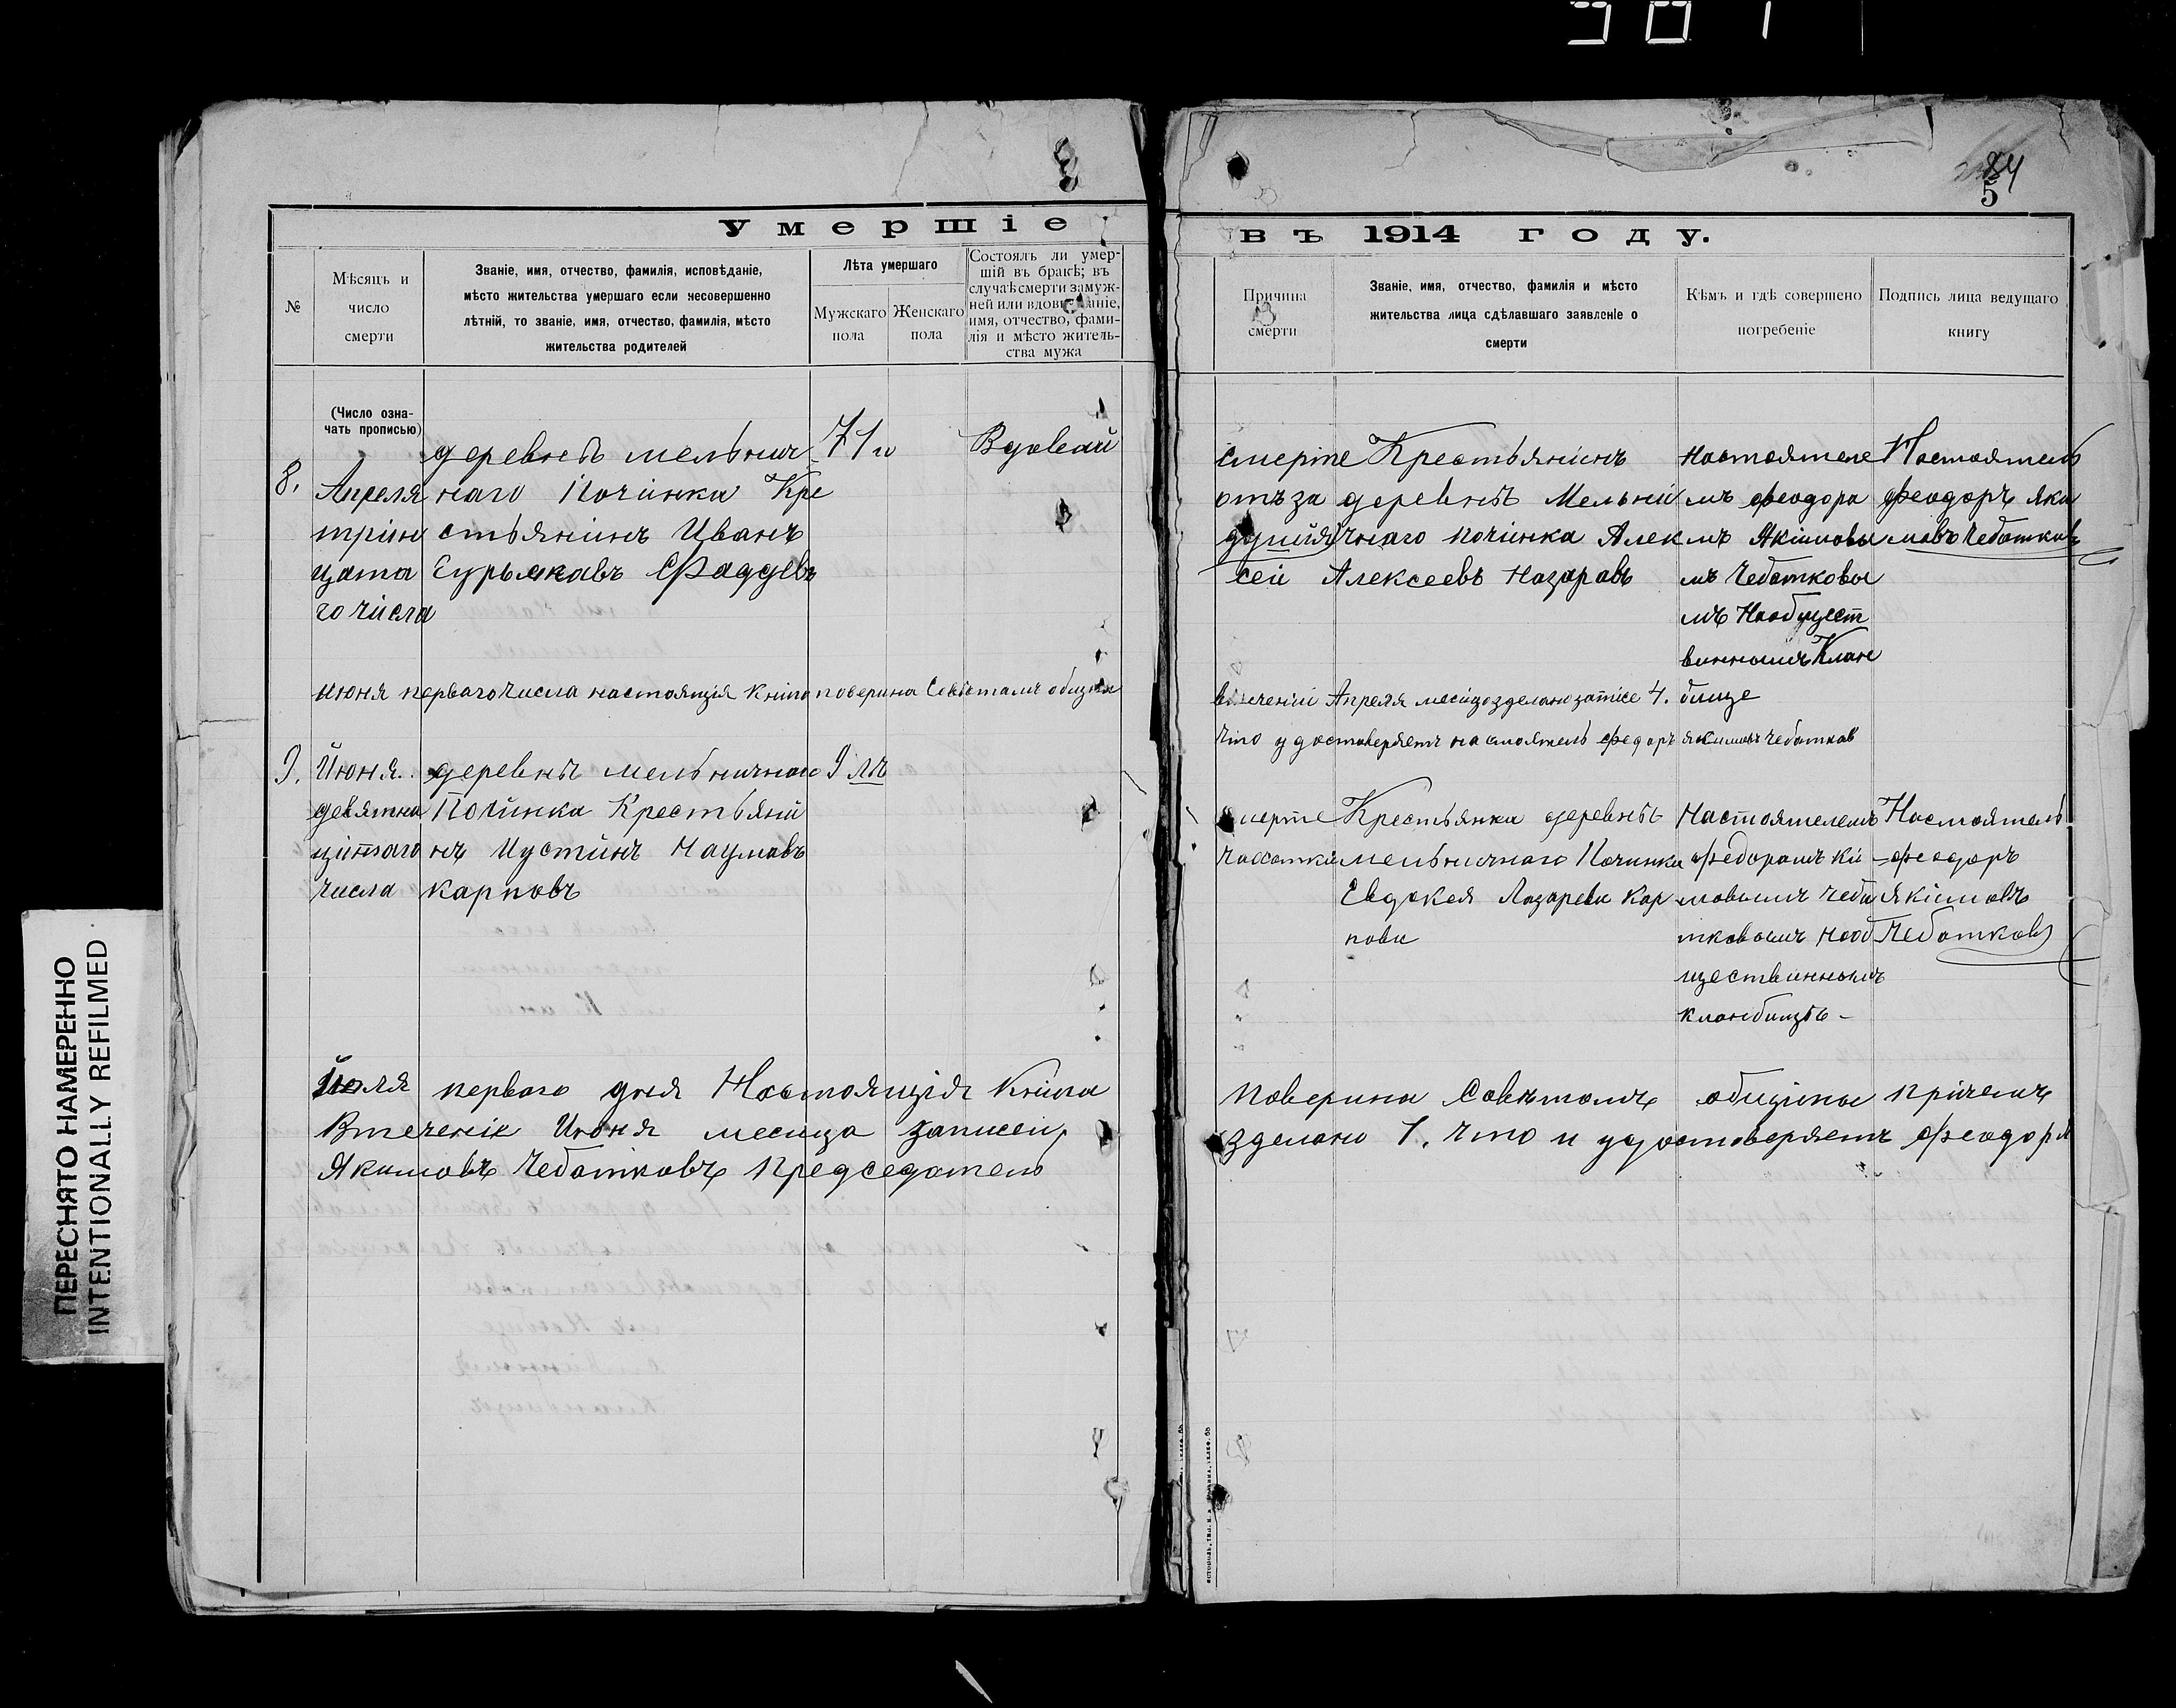 84
5
Умершіе
въ 1914 году.
№
Мѣсяцъ и
число
смерти
Званіе, имя, отчество, фамилія, исповѣданіе,
мѣсто жительства умершаго если несовершенно
лѣтній, то званіе, имя, отчество, фамилія, мѣсто
жительства родителей
Лѣта умершаго
Мужскаго
пола
Женскаго
пола
Состоялъ ли умер-
шій въ бракѣ; въ
случаѣ смерти замуж-
ней или вдовы званіе,
имя, отчество, фами-
лія и мѣсто житель-
ства мужа
Причина
смерти
Званіе, имя, отчество, фамилія и мѣсто
жительства лица сдѣлавшаго заявленіе о
смерти
Кѣмъ и гдѣ совершено
погребеніе
Подпись лица ведущаго
книгу
(Число озна-
чать прописью)
8.
Апреля
трин
цата
го числа
деревнѣ мельнич
наго Починка Кре
стьянинъ Иванъ
Гурьяновъ Фаддевъ
71
Вдовай
смерте
отъ за
душия
Крестьянинъ
деревнѣ Мельни
чнаго починка Алек
сей Алексеевъ Назаравъ
Настоятеле
мъ феодора
мъ Якимовы
мъ Чеботковы
мъ Наобщест
винномъ Клан
бище
Настоятель
феодоръ Яки
мовъ Чеботковъ
июня перваго числа настоящія книга поверина Советамъ общины
в течении Апреля месица зделано записе 4.
Что удостоверяетъ настоятель федоръ якимовъ чеботков
9.
Июня
девятна
цатаго
числа
деревнѣ мельничнаго
Починка Крестьяни
нъ Иустинъ Наумавъ
карповъ
9 лѣ
смерте
Крестьянка деревнѣ
мельничнаго Починка
Евдокея Лазарева Кар
пова
Настоятелемъ
федорамъ Ки
мовымъ чебо
тковымъ Нооб
ществинномъ
кланбищѣ -
Настоятель
феодоръ
Якимовъ
Чеботковъ
Июля перваго дня Настоящія Книга
поверина Савѣтомъ общины причемъ
Втечение Июня месица записей
зделано 1. что и удостоверяетъ Феодоръ
Якимовъ Чеботковъ председатель
ПЕРЕСНЯТО НАМЕРЕННО
INTENTIONALLY REFILMED